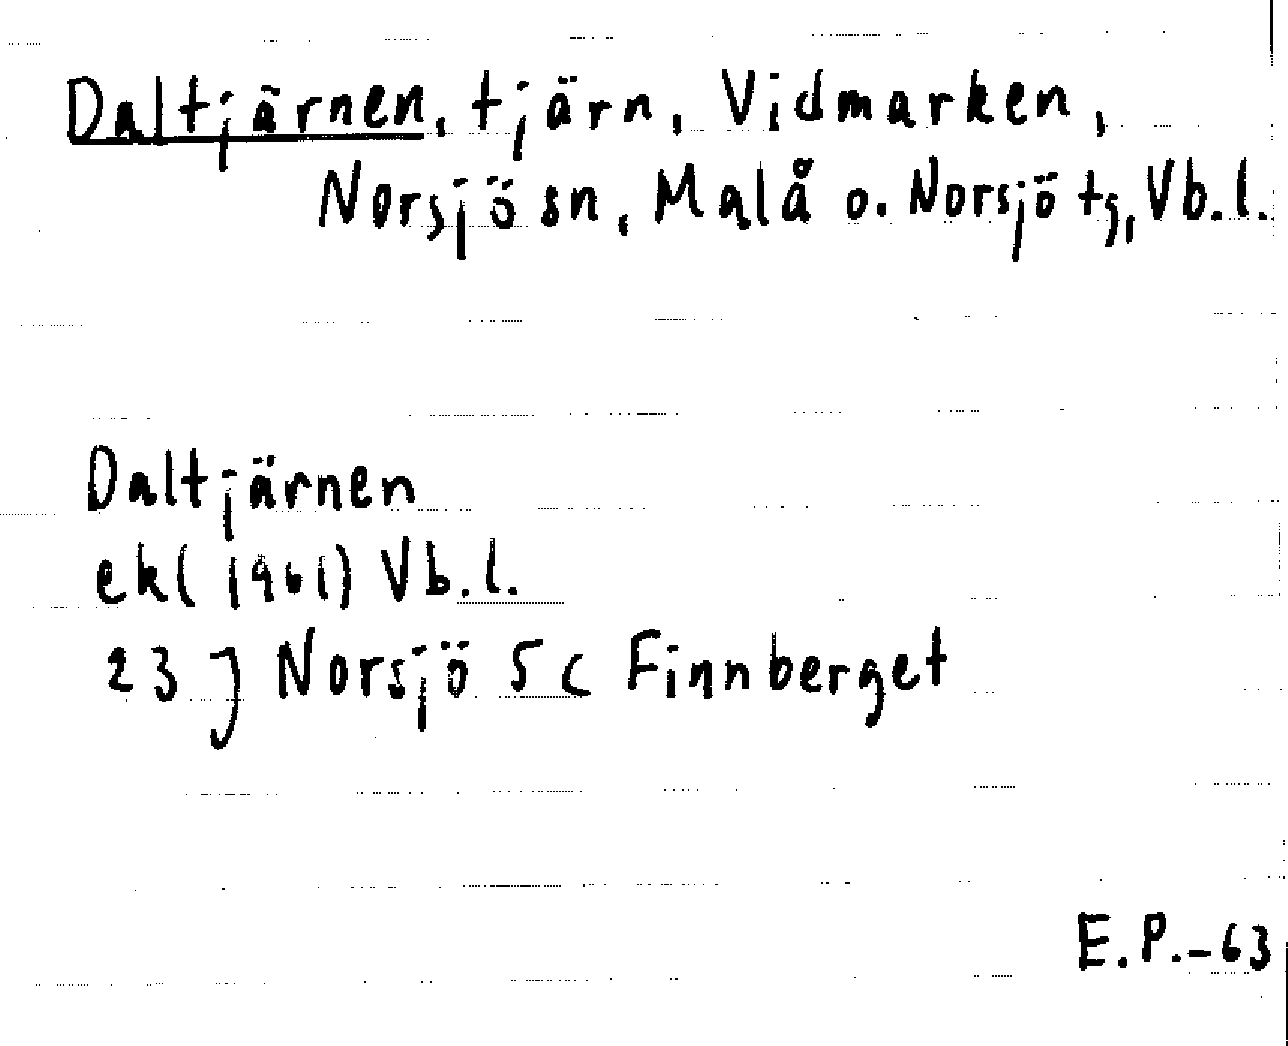 Daltjärnen, tjärn, Vidmarken,
Norsjö sn, Malå o. Norsjö tg, Vb.l.
Daltjärnen
ek( 1961) Vb.l.
23 J Norsjö 5c Finnberget
E.P.-63